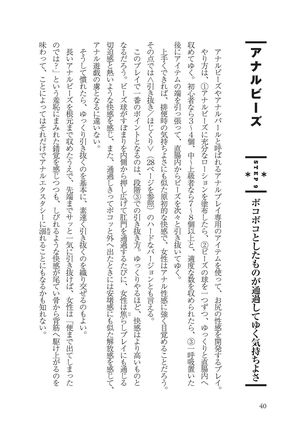 アナルビーズ
STEP 9
ボコボコとしたものが通過してゆく気持ちよさ
アナルビーズやアナルパールと呼ばれるアナルプレイ専用のアイテムを使って、お尻の性感を開発するプレイ。
やり方は、①アナルビーズに充分なローションを塗布したら、②ビーズの球を一つずつ、ゆっくりと直腸内へ
収めてゆく。初心者なら3〜4個、中〜上級者なら7〜8個以上と、適度な数を収められたら、③一呼吸置いた
後にアイテムの端を引っ張って、直腸内からビーズを次々と引き抜いてゆく。
上手くできれば、排便時の気持ちよさにも似た原初的な快感で、女性はアナル性感に強く目覚めることだろう。
その点では〈引き抜き／ほじくり〉（28ページを参照）のハードなバージョンとも言える。
このプレイで一番のポイントとなるのは、段階③での引き抜き方。ゆっくりやるほど、快感はより高いものと
なるだろう。ビーズ球がすぼまりを内側から押し広げて肛門を通過するたびに、女性は焦らしプレイにも通じる
切迫感と熱いような快感を感じて、また、通過しきってポコっと外へ出たときには安堵感にも似た解放感を感じて、
アナル遊戯の虜となるに違いない。
そうして慣れたら、ゆっくり引き抜くのを基本に、素速く引き抜くのを織り交ぜるのもよい。
長いアナルビーズを根元まで収めたうえで、先端までサッと一気に引き抜けば、女性は「便まで出てしまった
のでは？」という羞恥にまみれた錯覚を感じつつも、しびれるような快感が尾てい骨から背筋へ駆け上がるのを
味わって、ことによってはそれだけでアナルエクスタシーに溺れることにもなるかも知れない。
40